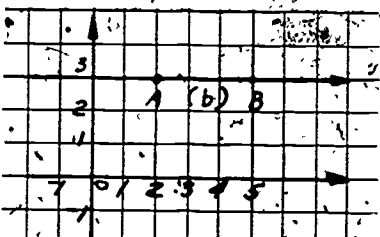 3
A (b) B
2
1
-1 0 1 2 3 4 5
-1